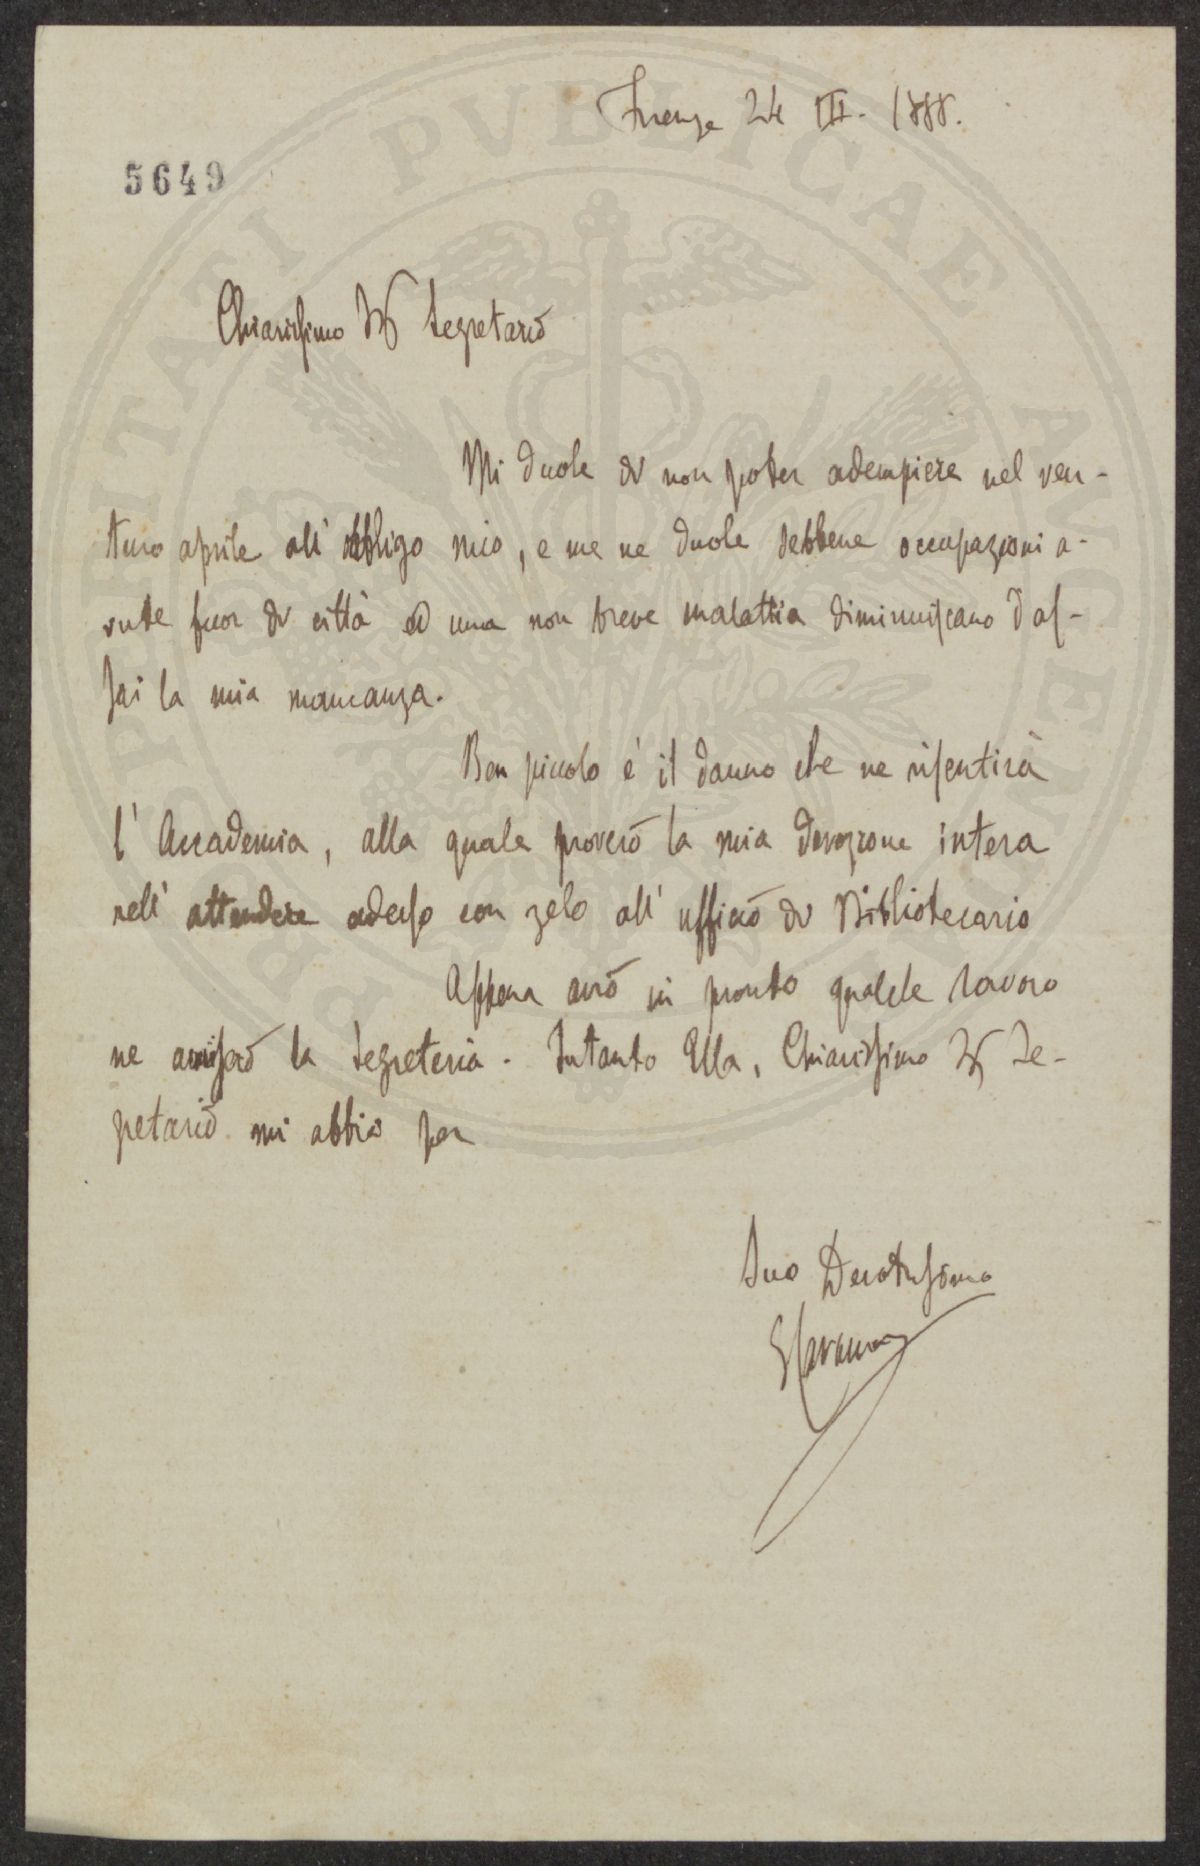 Firenze 24 III. 1888.
5649
Chiarissimo Segretario
Mi duole di non poter adempiere nel ven-
turo aprile all' obbligo mio, e me ne duole sebbene occupazioni a-
vute fuor di città ed una non breve malattia diminuiscano d'as-
sai la mia mancanza.
Ben piccolo è il danno che ne risentirà
l' Accademia, alla quale proverò la mia devozione intera
nell' attendere adesso con zelo all' ufficio di Bibliotecario
Appena avrò in pronto qualche lavoro
ne avviserò la Segreteria. Intanto Ella, Chiarissimo Se-
gretario mi abbia per
Suo Devotissimo
PROSPERITATI PVBLICAE AVGENDAE